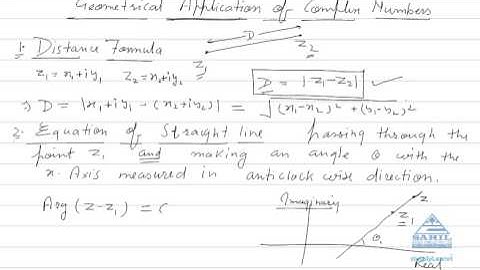 Geometrical Application of Complex Numbers
1. Distance Formula
D
z₁
z₂
z₁ = x₁+iy₁ z₂ = x₂+iy₂
D = |z₁-z₂| ✓
⇒ D = |x₁+iy₁ - (x₂+iy₂)| = √(x₁-x₂)² + (y₁-y₂)²
2. Equation of Straight line passing through the
point z₁ and making an angle θ with the
x-Axis measured in anticlock wise direction.
Arg (z-z₁) = (
Imaginary
z
z₁
θ
Real
SAHIL